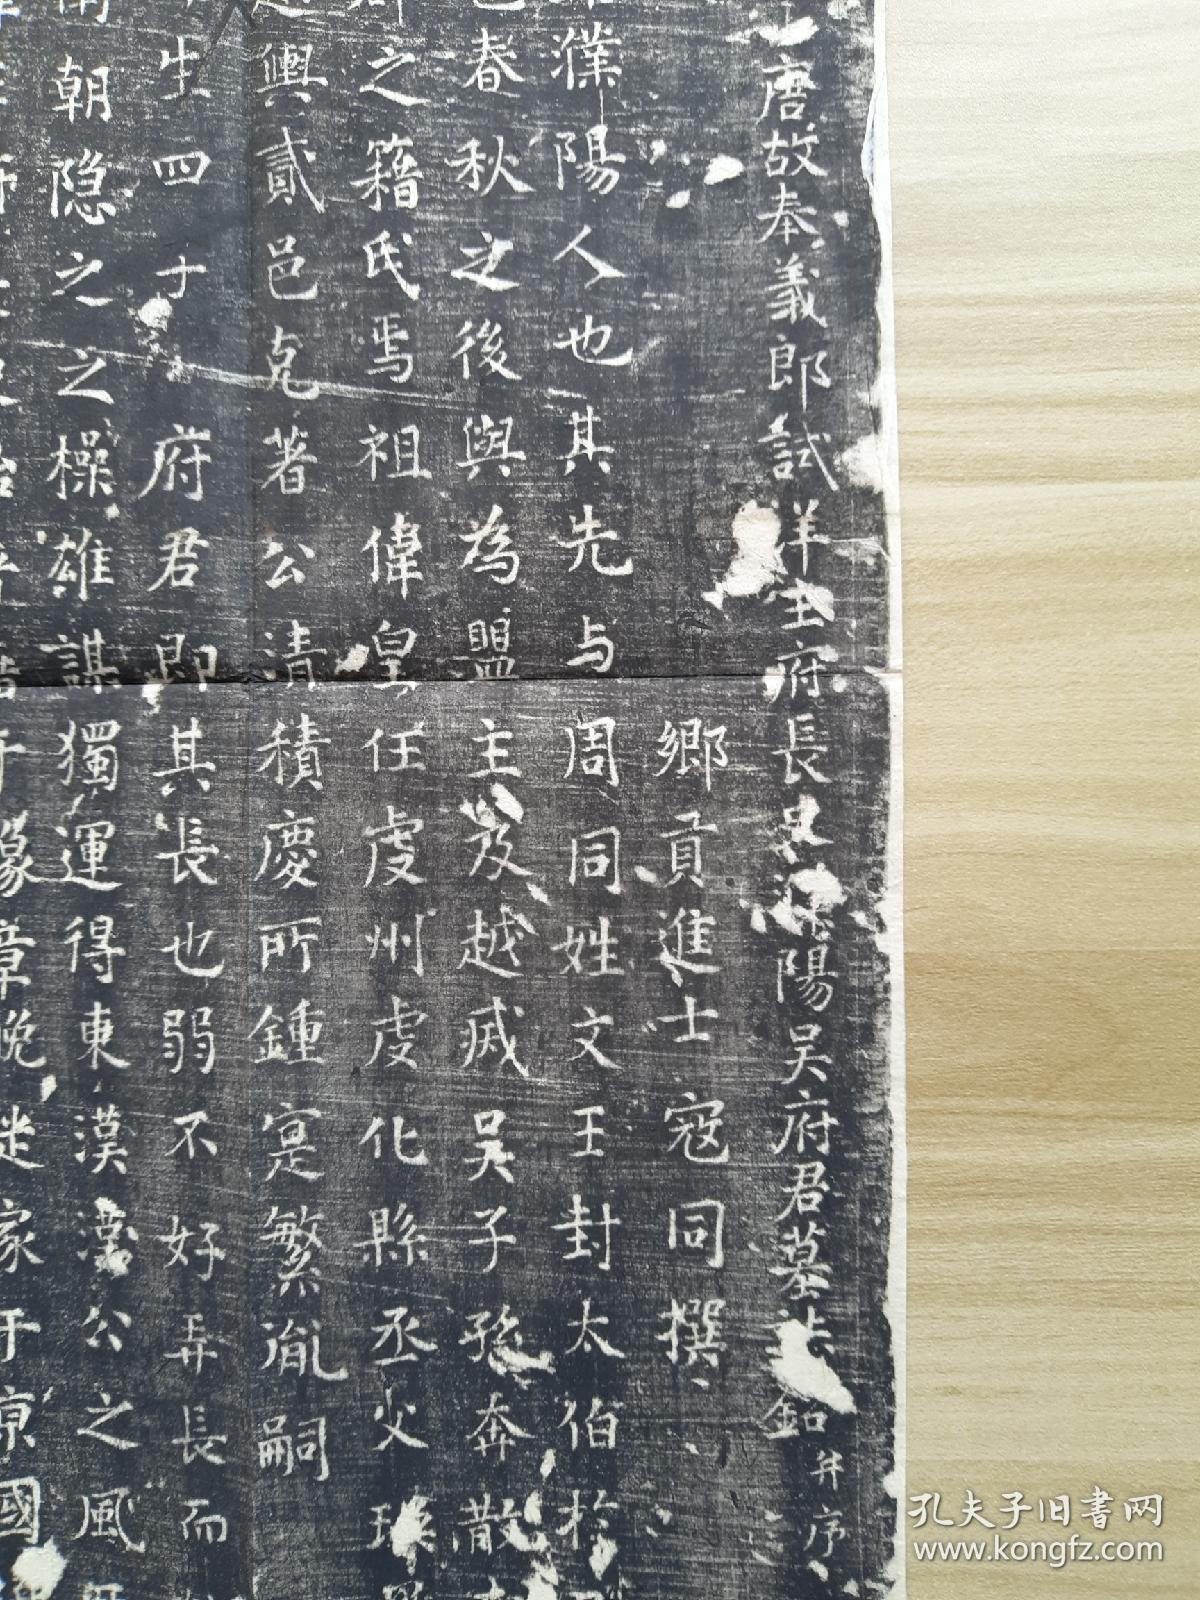 唐故奉義郎試洋王府長史濮陽吳府君墓誌銘并序
鄉貢進士寇同撰
濮陽人也其先与周同姓文王封太伯於
春秋之後與為盟主及越滅吳子孫奔散
之籍氏焉祖偉皇任虔州虔化縣丞父
輿貳邑克著公清積慶所鍾寔繁胤嗣
生四子府君即其長也弱不好弄長而
朝隐之之操雄謀獨運得東漢漢公之風
于豫章晚家于京國
孔夫子旧书网
www.kongfz.com